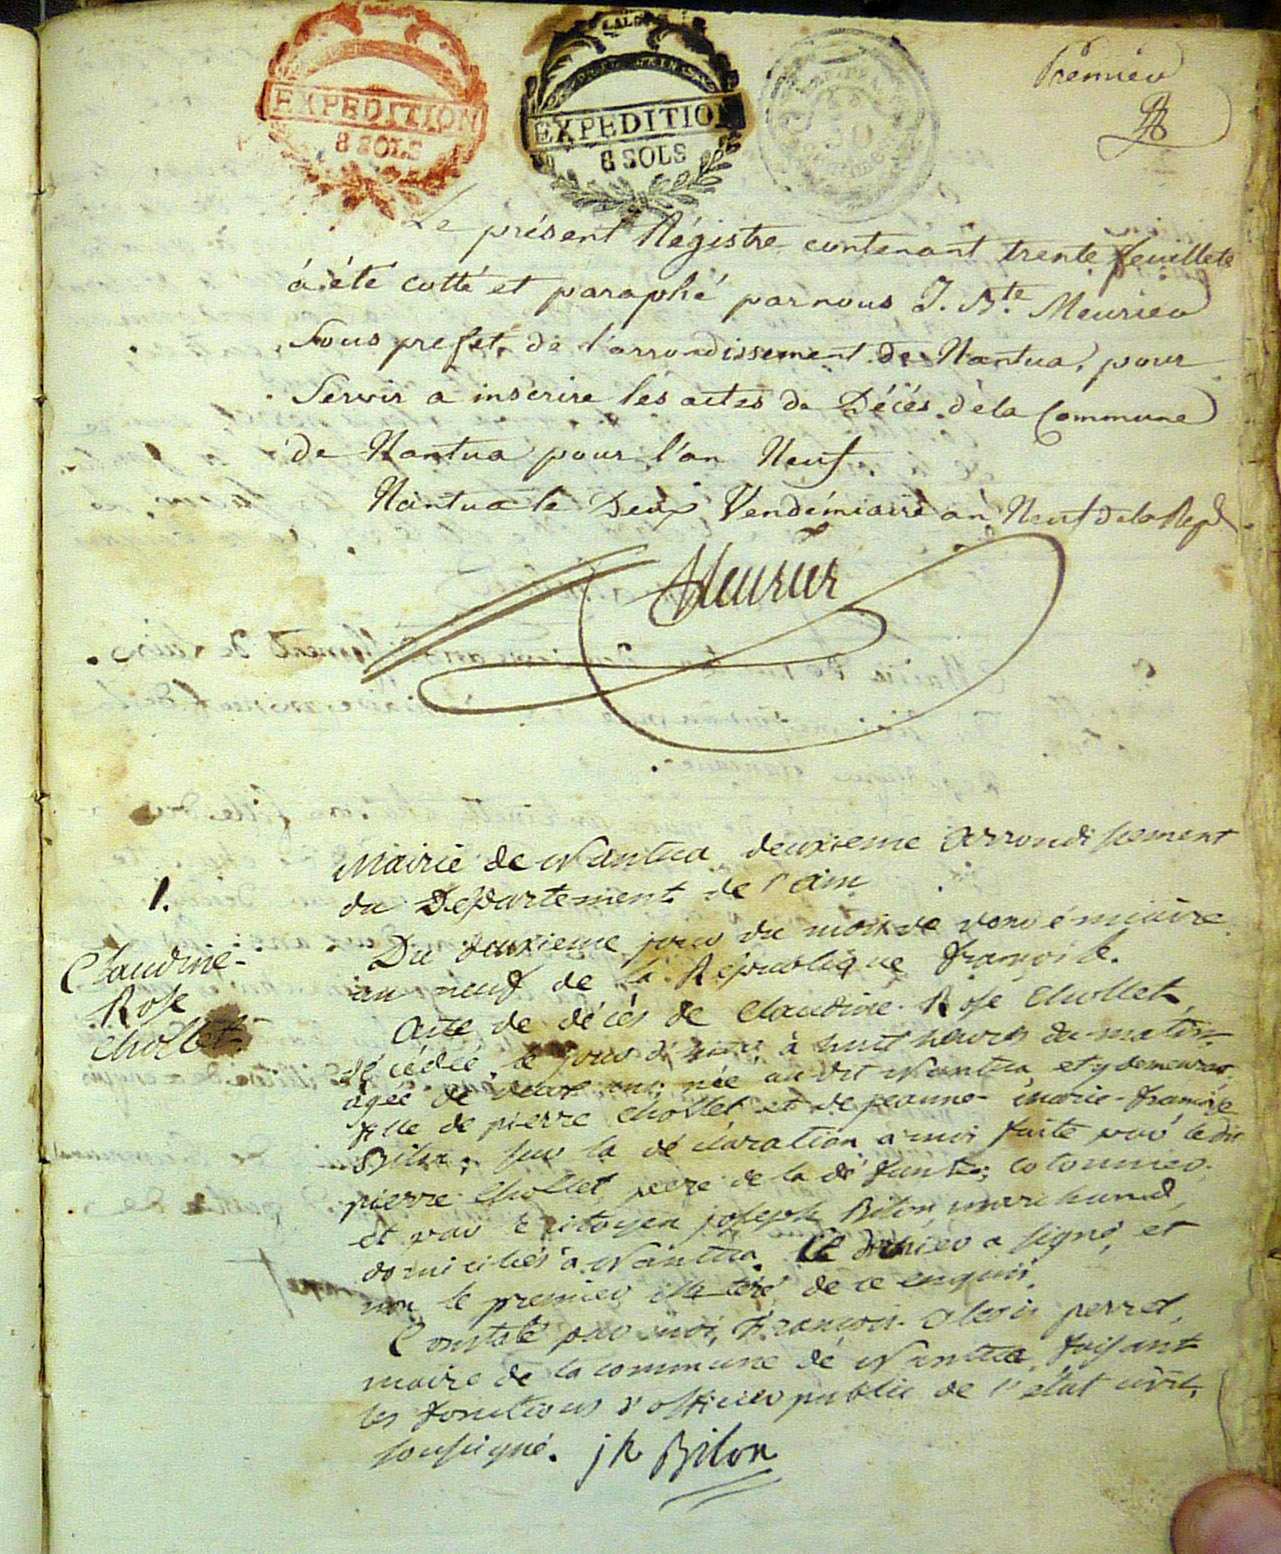 EXPEDITION
8 SOLS
EXPEDITION
8 SOLS
Premier
Le présent Régistre contenant trente feuillets
à été cotté et paraphé par nous J. Bte. Meurier
Sous prefet de l'arrondissement de Nantua, pour
Servir a inscrire les actes de Décés de la Commune
de Nantua pour l'an Neuf
Nantua le Deux Vendémiaire an Neuf de la Rep
Meurier
Mairie de Nantua, deuxieme arrondissement
du Département de l'ain
1.
Du deuxieme jour du mois de vendémiaire
an neuf de la République françoise.
Claudine-
Rose
Chollet
Acte de décés de Claudine-Rose Chollet,
décédée le jour d'hier, à huit heures du matin,
agée de deux ans, née audit Nantua, et y demeurant,
fille de pierre Chollet et de jeanne-marie-françoise
Bilon; sur la déclaration à moi faite par le dit
pierre Chollet, pere de la défunte, cotonnier,
et par le citoyen joseph Bilon, marchand,
domiciliés à Nantua. Le dernier a signé, et
non le premier illiteré de ce enquis.
Constaté par moi, François-Alexis perret,
maire de la commune de Nantua, faisant
les fonctions d'officier public de l'état civil,
soussigné. jh Bilon